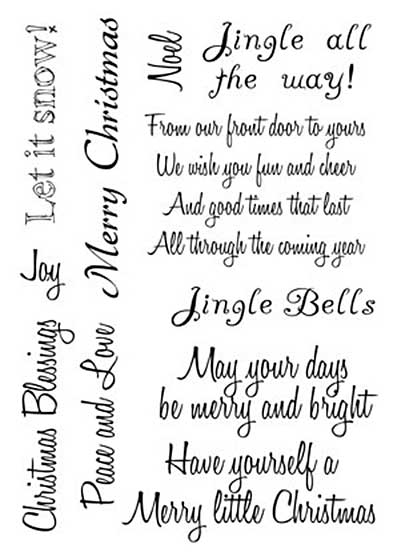 Let it snow!
Merry Christmas
Noel
Jingle all
the way!
From our front door to yours
We wish you fun and cheer
And good times that last
All through the coming year
Joy
Jingle Bells
Christmas Blessings
Peace and Love
May your days
be merry and bright
Have yourself a
Merry little Christmas